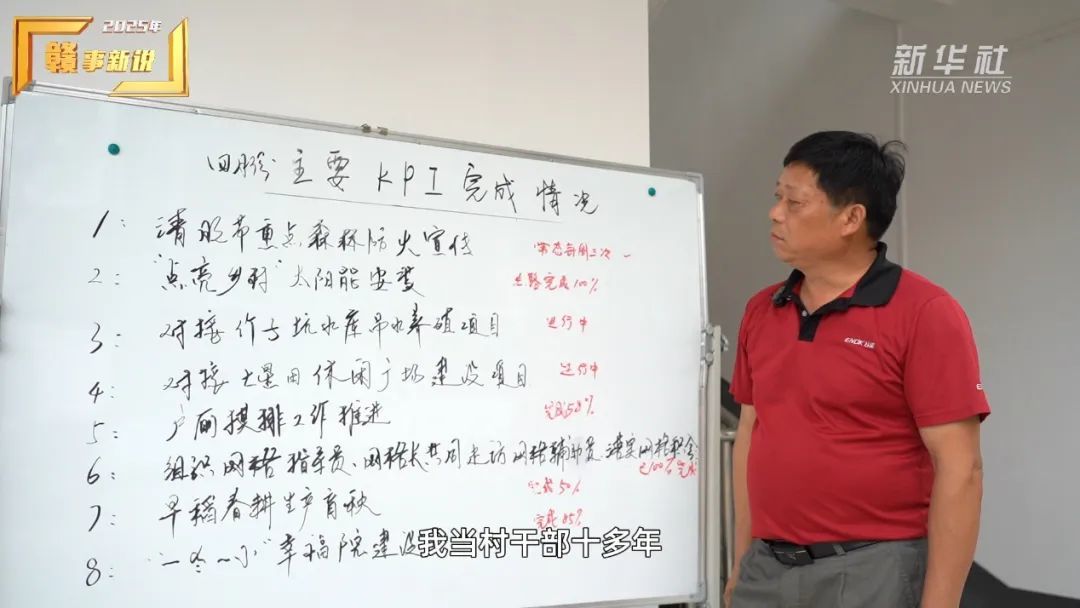 2025年
赣事新说
新华社
XINHUA NEWS
四月份主要KPI完成情况
1: 清明节重点森林防火宣传 常态每周三次
2: "点亮乡村"太阳能安装 完成100%
3: 对接 坑水库吊水养殖项目 进行中
4: 对接 休闲广场建设项目 进行中
5: 户厕摸排工作推进 完成50%
6: 组织网格指导员、网格长共同走访网格辅助员 落实网格 已100%完成
7: 早稻春耕生产育秧 完成50%
8: "一 小"幸福院建设 完成85%
ENOK
我当村干部十多年